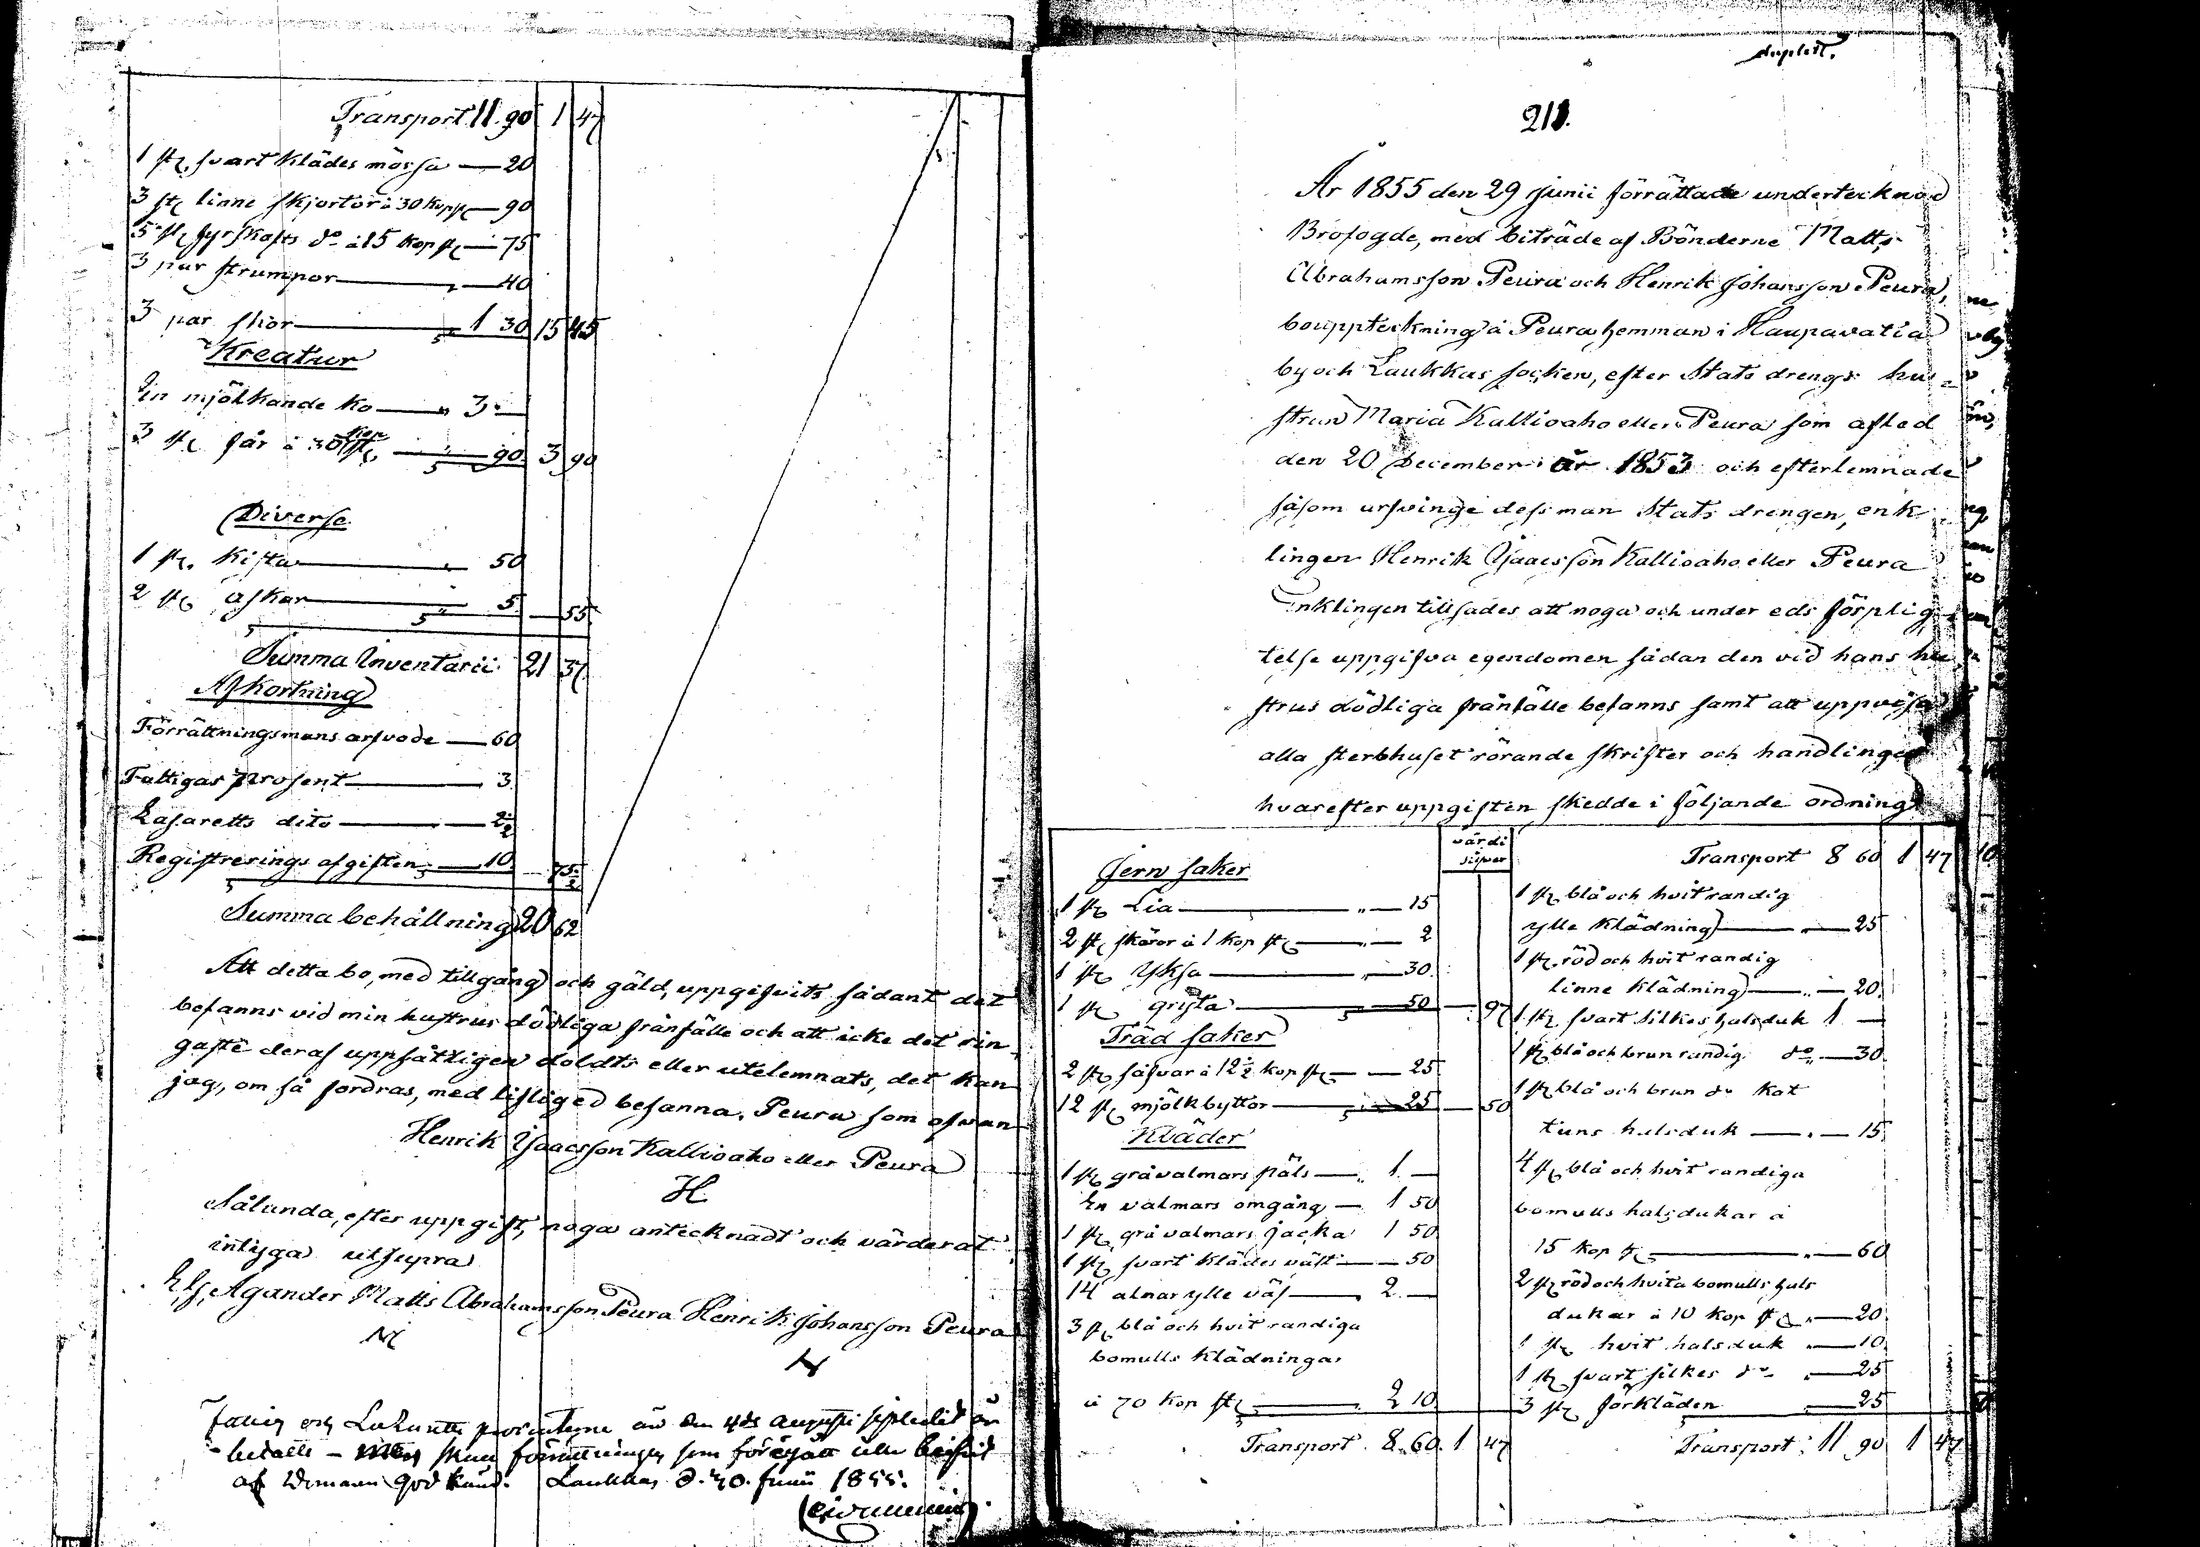 Transport 11. 90 1 47
1 st. svart klädes mössa — 20
3 st. linne skjortor à 30 kop st. — 90
5 st. fyrskafts do à 15 kop st. — 75
3 par strumpor — 40
3 par skor — 1 30 15 45
Kreatur
En mjölkande ko — 3. —
3 st. får à 30 kop st. — 90 3 90
Diverse
1 st. kista — 50
2 st. askar — 5 — 55
Summa Inventarii 21 37
Afkortning
Förrättningsmans arfvode — 60
Fattigas prosent — 3
Lasaretts dito — 2½
Registrerings afgiften — 10 — 75½
Summa behållning 20 62
Att detta bo, med tillgång och gäld, uppgifvits sådant det
befanns vid min hustrus dödliga frånfälle och att icke det rin-
gaste deraf uppsåtligen doldts eller utelemnats, det kan
jag, om så fordras, med liflig ed besanna. Peura som ofvan
Henrik Isaacsson Kallioaho eller Peura
H
Sålunda, efter uppgift, noga antecknadt och värderat
intyga utsupra
Agander Matts Abrahamsson Peura Henrik Johansson Peura
af god känd. Laukkas d. 30. Junii 1855.
duplett.
211.
År 1855 den 29 Junii förrättade undertecknad
Brofogde, med biträde af Bönderne Matts
Abrahamsson Peura och Henrik Johansson Peura,
bouppteckning å Peura hemman i Haapavatia
by och Laukkas socken, efter Stats drengs hu-
strun Maria Kallioaho eller Peura som afled
den 20 December år 1853 och efterlemnade
såsom arfvinge dess man Stats drengen, enk-
lingen Henrik Isaacsson Kallioaho eller Peura
Enklingen tillsades att noga och under eds förplig-
telse uppgifva egendomen sådan den vid hans hu-
strus dödliga frånfälle befanns samt att uppvisa
alla sterbhuset rörande skrifter och handlingar
hvarefter uppgiften skedde i följande ordning
värdi
silfver
Jern saker
1 st. Lia — 15
2 st. skäror à 1 kop st. — 2
1 st. Yksa — 30
1 st. grista — 50 — 97
Träd saker
2 st. såfvar à 12½ kop st. — 25
12 st. mjölkbyttor — 25 — 50
Kläder
1 st. grå valmars päls — 1. —
En valmars omgång — 1 50
1 st. grå valmars jacka 1 50
1 st. svart klädes väst — 50
14 alnar ylle väf — 2. —
3 st. blå och hvit randiga
bomulls klädningar
à 70 kop st. — 2 10
Transport 8. 60. 1 47
Transport 8 60 1 47
1 st. blå och hvit randig
ylle klädning — 25
1 st. röd och hvit randig
linne klädning — 20
1 st. svart silkes halsduk 1 —
1 st. blå och brun randig do — 30
1 st. blå och brun do kat
tuns halsduk — 15
4 st. blå och hvit randiga
bomulls halsdukar à
15 kop st. — 60
2 st. röd och hvita bomulls hals
dukar à 10 kop st. — 20
1 st. hvit halsduk — 10
1 st. svart silkes do — 25
3 st. förkläden — 25
Transport 11 90 1 47